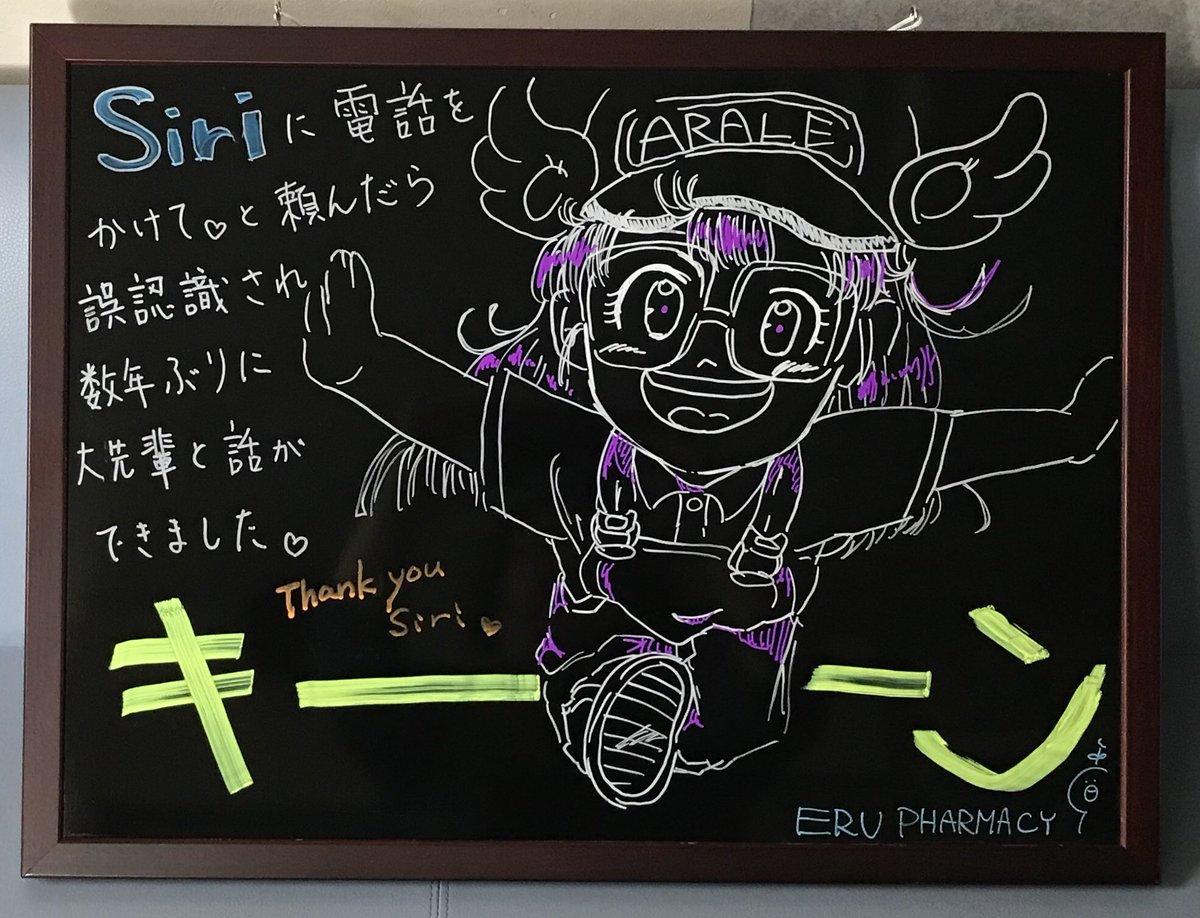 Siriに電話を
かけて♡と頼んだら
誤認識され
数年ぶりに
大先輩と話が
できました♡
Thank you
Siri♥
ARALE
キーーン
ERU PHARMACY